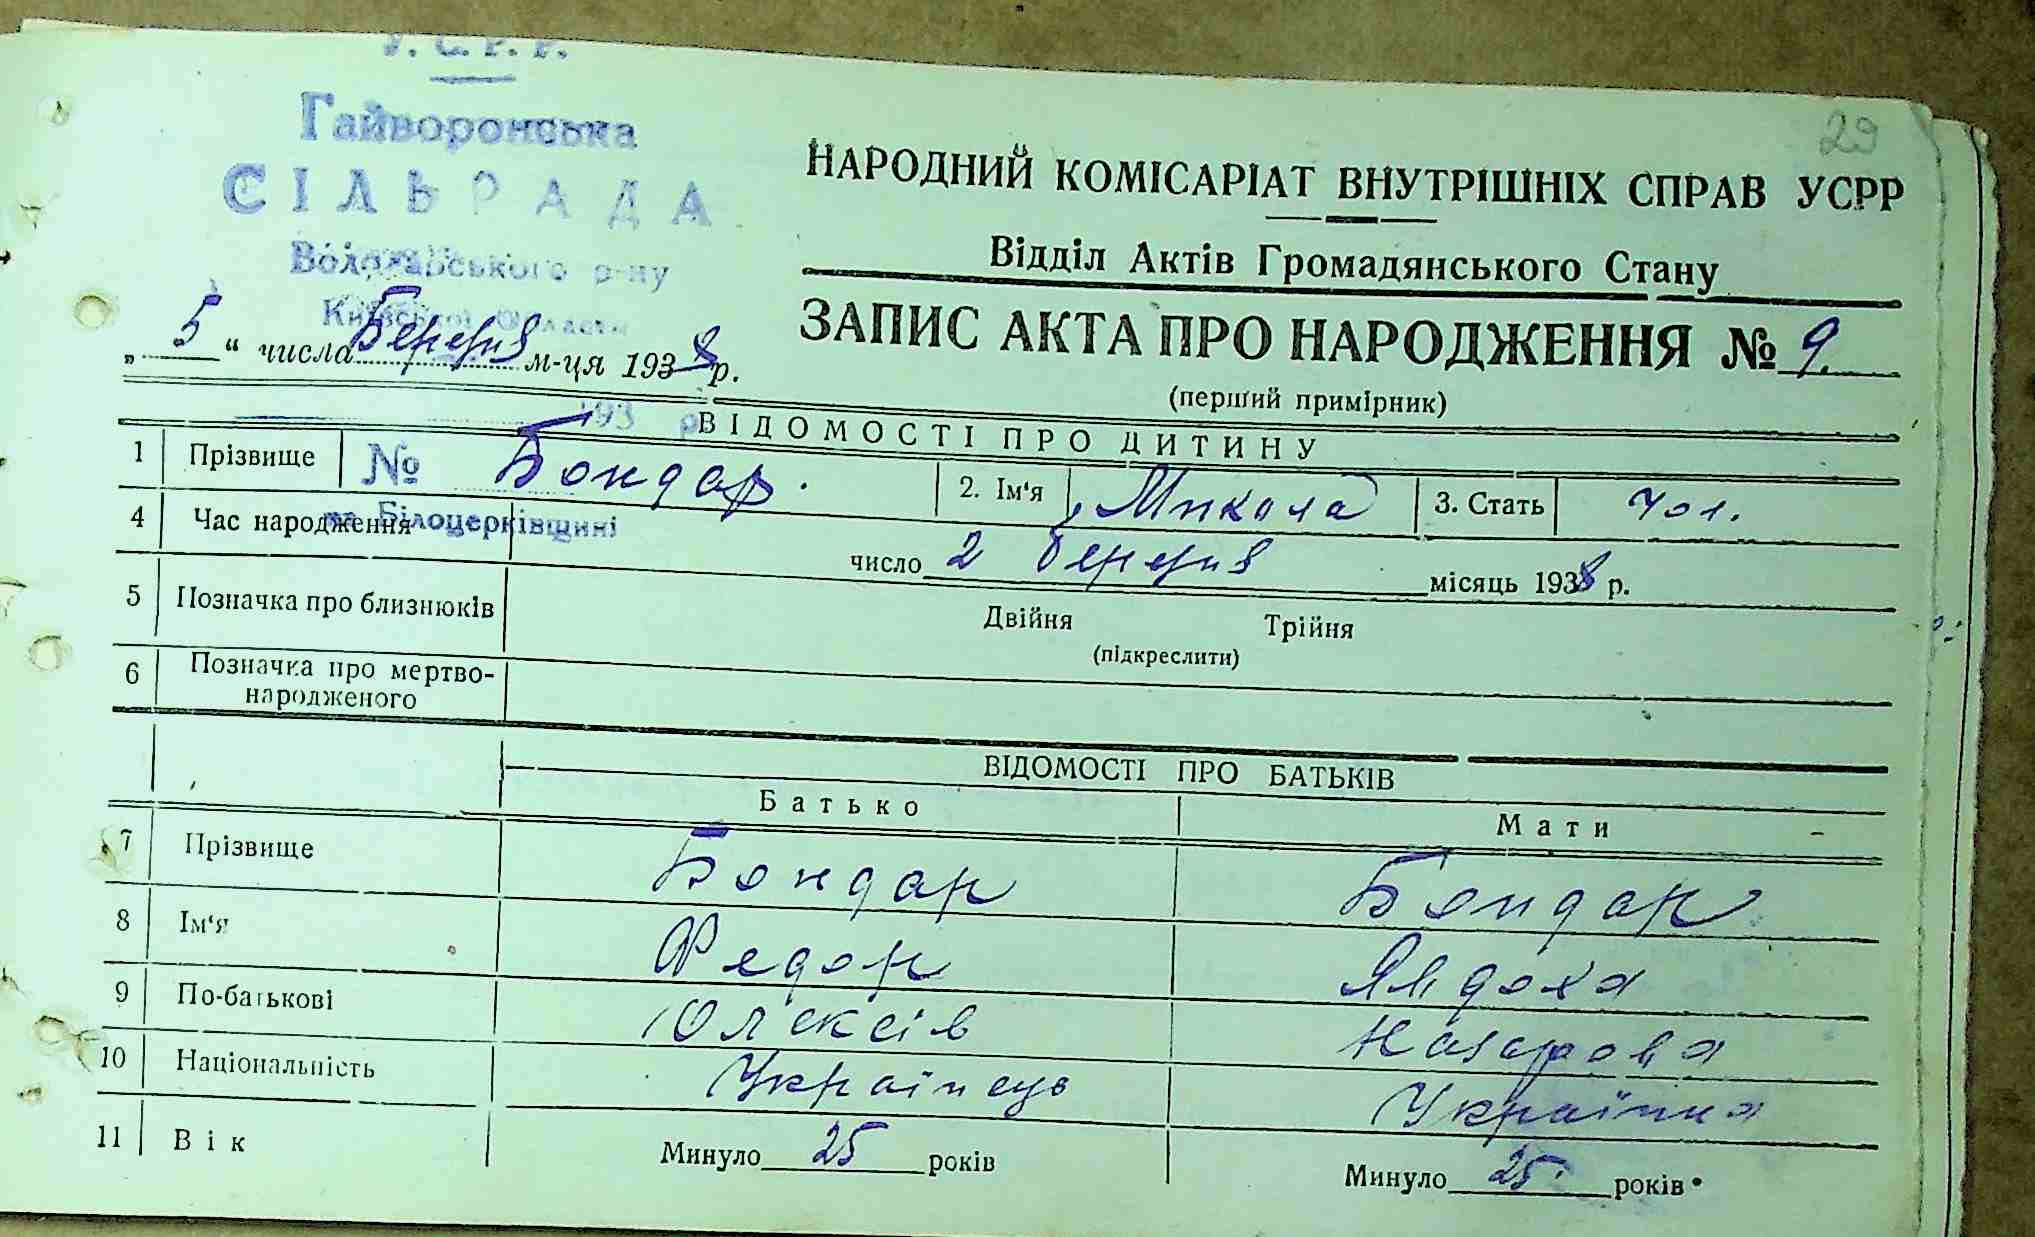 У. С. Р. Р.
Гайворонська
СІЛЬРАДА
Володарського р-ну
Київської області
29
НАРОДНИЙ КОМІСАРІАТ ВНУТРІШНІХ СПРАВ УСРР
Відділ Актів Громадянського Стану
„ 5 “ числа Березня м-ця 1938 р.
ЗАПИС АКТА ПРО НАРОДЖЕННЯ № 9.
(перший примірник)
193 р
ВІДОМОСТІ ПРО ДИТИНУ
1 Прізвище № Бондар. 2. Ім‘я Микола 3. Стать чол.
на Білоцерківщині
4 Час народження число 2 березня місяць 1938 р.
5 Позначка про близнюків Двійня Трійня
(підкреслити)
6 Позначка про мертво-
народженого
ВІДОМОСТІ ПРО БАТЬКІВ
Батько Мати
7 Прізвище Бондар Бондар
8 Ім‘я Федор Явдоха
9 По-батькові Олексів Назарова
10 Національність Українець Українка
11 Вік Минуло 25 років Минуло 25 років